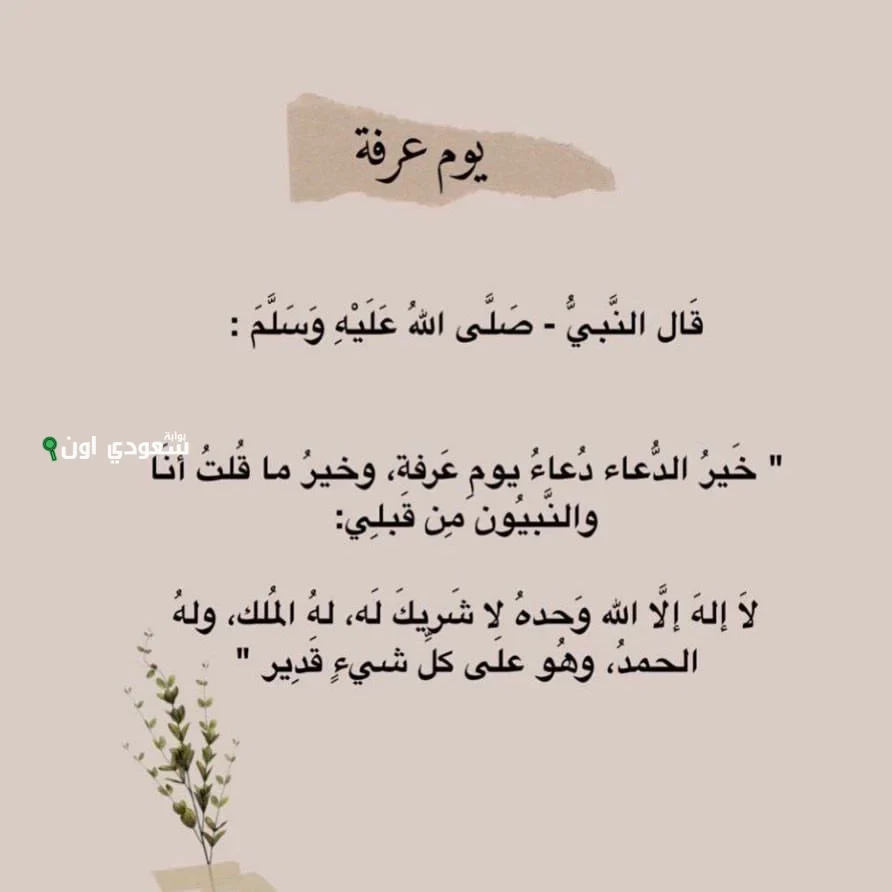 يوم عرفة
قَال النَّبيُّ - صَلَّى اللهُ عَلَيْهِ وَسَلَّمَ :
بوابة
سعودي اون
" خَيرُ الدُّعاء دُعاءُ يومِ عَرفة، وخيرُ ما قُلتُ أنَا
والنَّبيُون مِن قَبلِي:
لاَ إلهَ إلَّا الله وَحدهُ لا شَرِيكَ لَه، لهُ المُلك، ولهُ
الحمدُ، وهُو علَى كلِّ شيءٍ قَدِير "